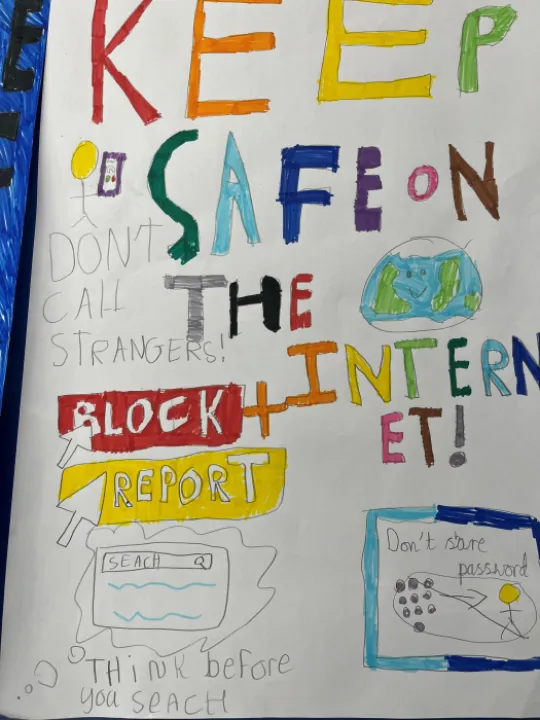 KEEP
SAFE ON
THE
INTERN
ET!
DON'T
CALL
STRANGERS!
BLOCK +
REPORT
SEACH
THiNK before
you SEACH
Don't share
password